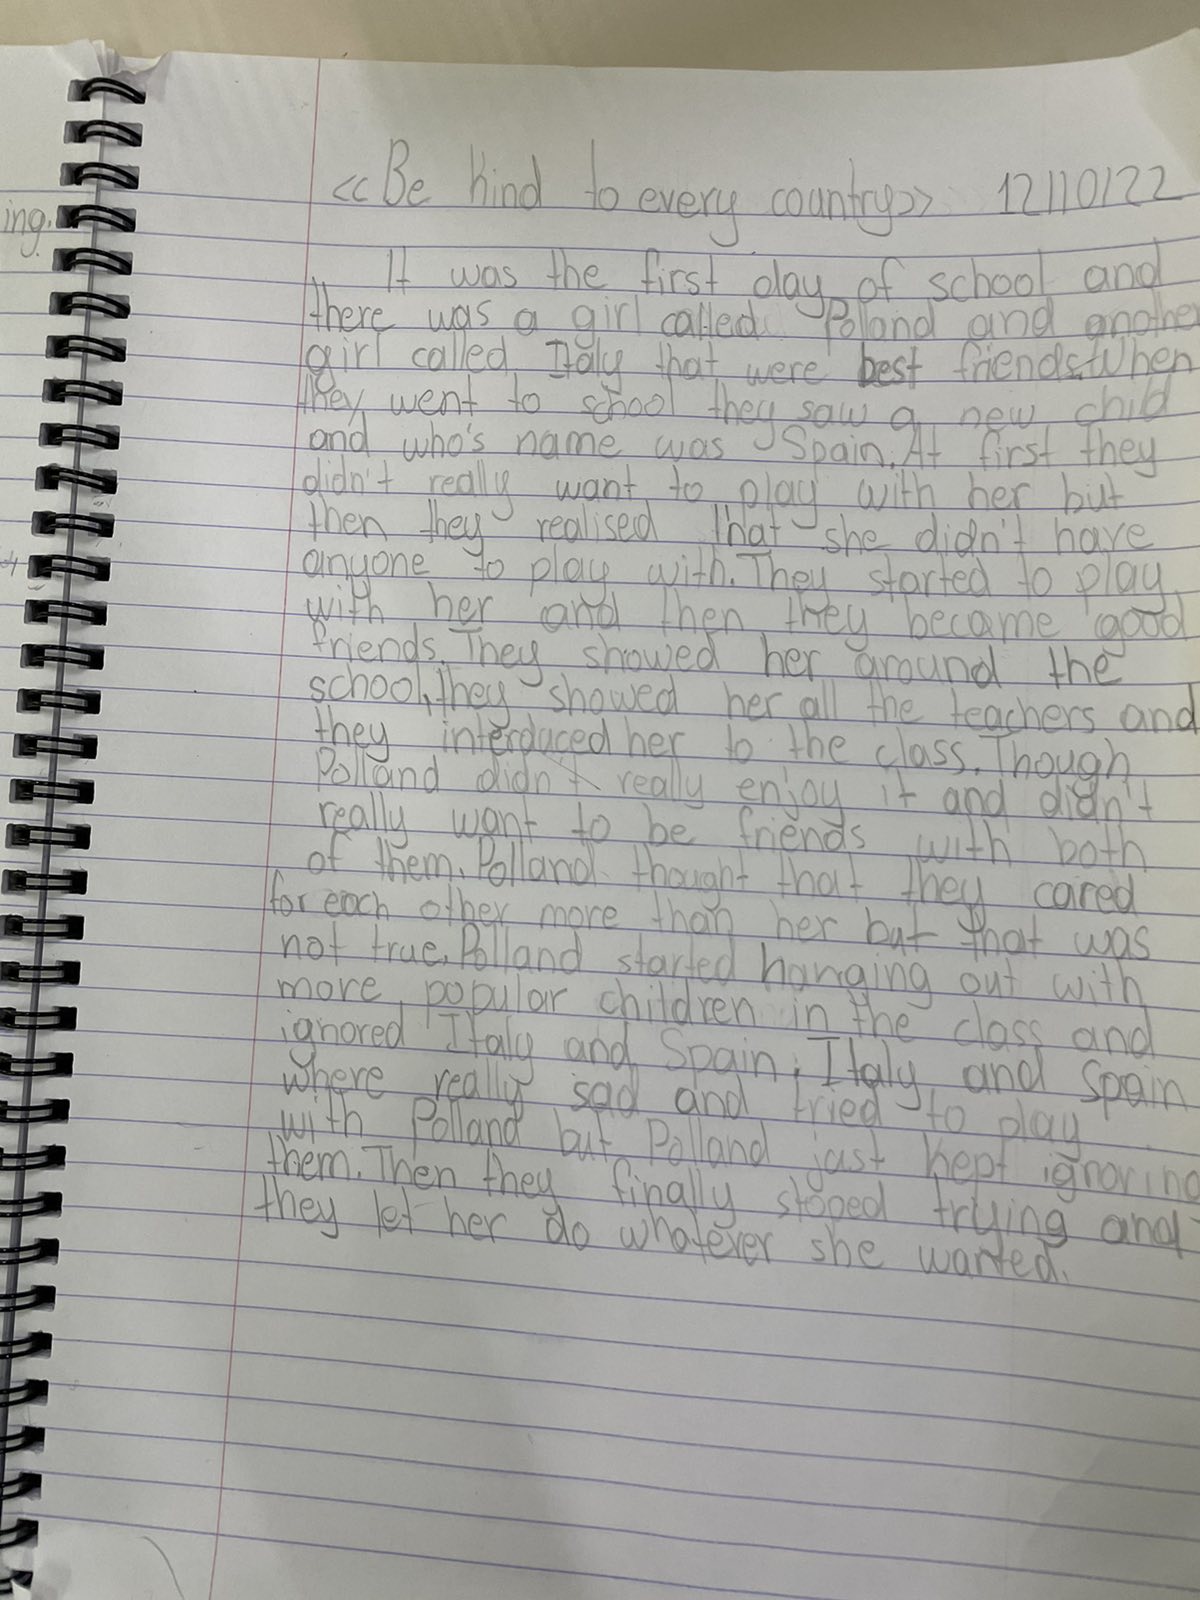 <<Be kind to every country>> 12/10/22
ing.
It was the first day of school and
there was a girl called Poland and another
girl called Italy that were best friends. When
they went to school they saw a new child
and who's name was Spain. At first they
didn't really want to play with her but
then they realised that she didn't have
anyone to play with. They started to play
with her and then they became good
friends. They showed her around the
school, they showed her all the teachers and
they interduced her to the class. Though
Polland didn't really enjoy it and didn't
really want to be friends with both
of them. Polland thought that they cared
for each other more than her but that was
not true. Polland started hanging out with
more popular children in the class and
ignored Italy and Spain. Italy and Spain
where really sad and tried to play
with Polland but Polland just kept ignoring
them. Then they finally stoped trying and
they let her do whatever she wanted.